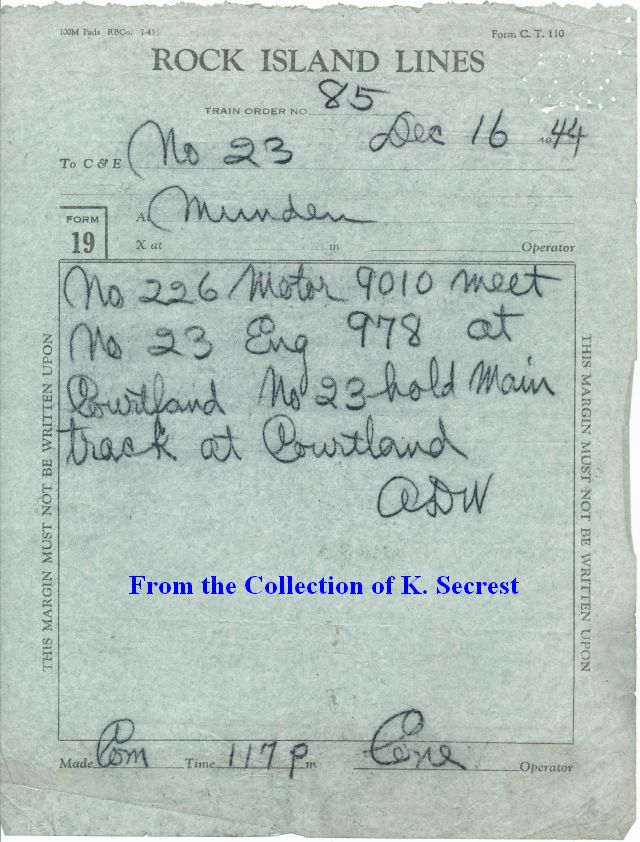 100M Pads RBCo. 7-43 Form C. T. 110
ROCK ISLAND LINES
TRAIN ORDER NO. 85
Dec 16 1944
To C & E No 23
FORM 19
At Munden
X at m Operator
No 226 Motor 9010 meet
No 23 Eng 978 at
Courtland No 23 hold Main
track at Courtland
ADW
THIS MARGIN MUST NOT BE WRITTEN UPON
THIS MARGIN MUST NOT BE WRITTEN UPON
From the Collection of K. Secrest
Made Com Time 117 P m Operator